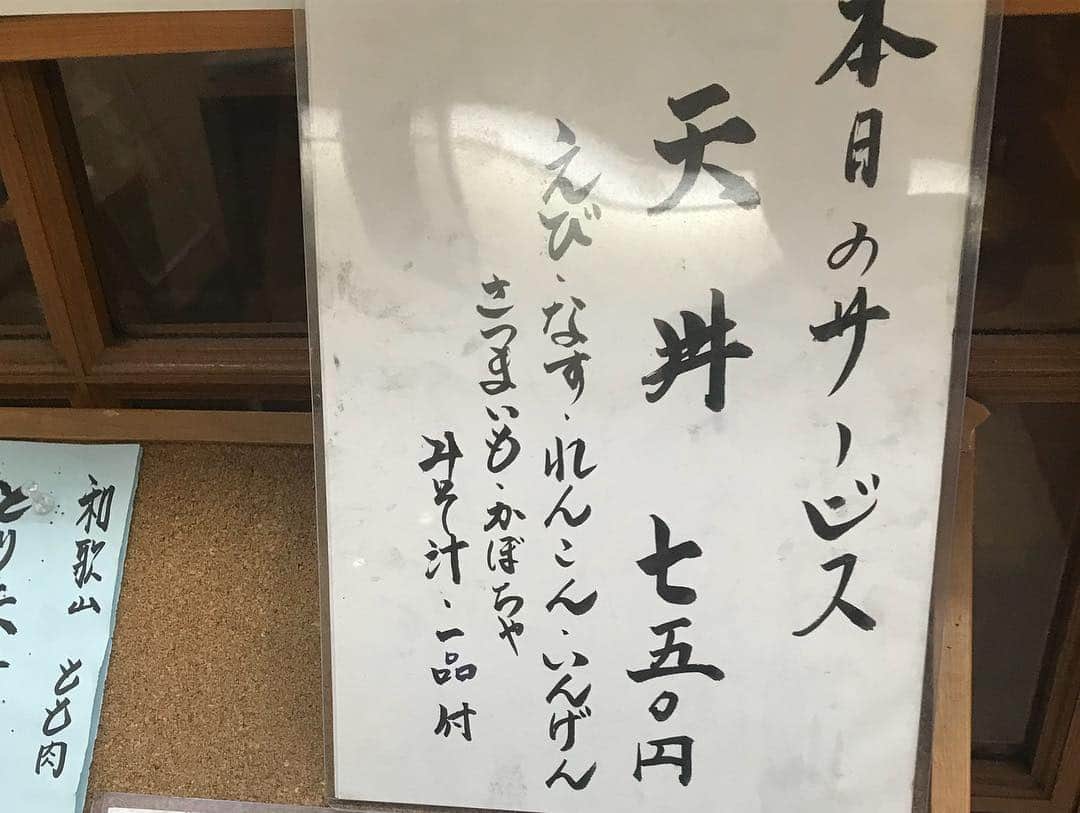 本日のサービス
天丼 七五〇円
えび、なす、れんこん、いんげん
さつまいも、かぼちゃ
みそ汁、一品付
和歌山 とも肉